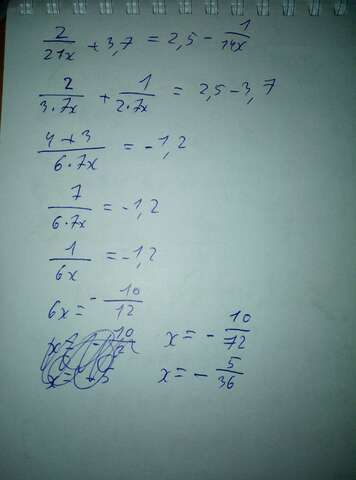 2/21x + 3,7 = 2,5 - 1/14x
2/3·7x + 1/2·7x = 2,5 - 3,7
4+3/6·7x = -1,2
7/6·7x = -1,2
1/6x = -1,2
6x = - 10/12
x = - 10/72
x = - 5/36